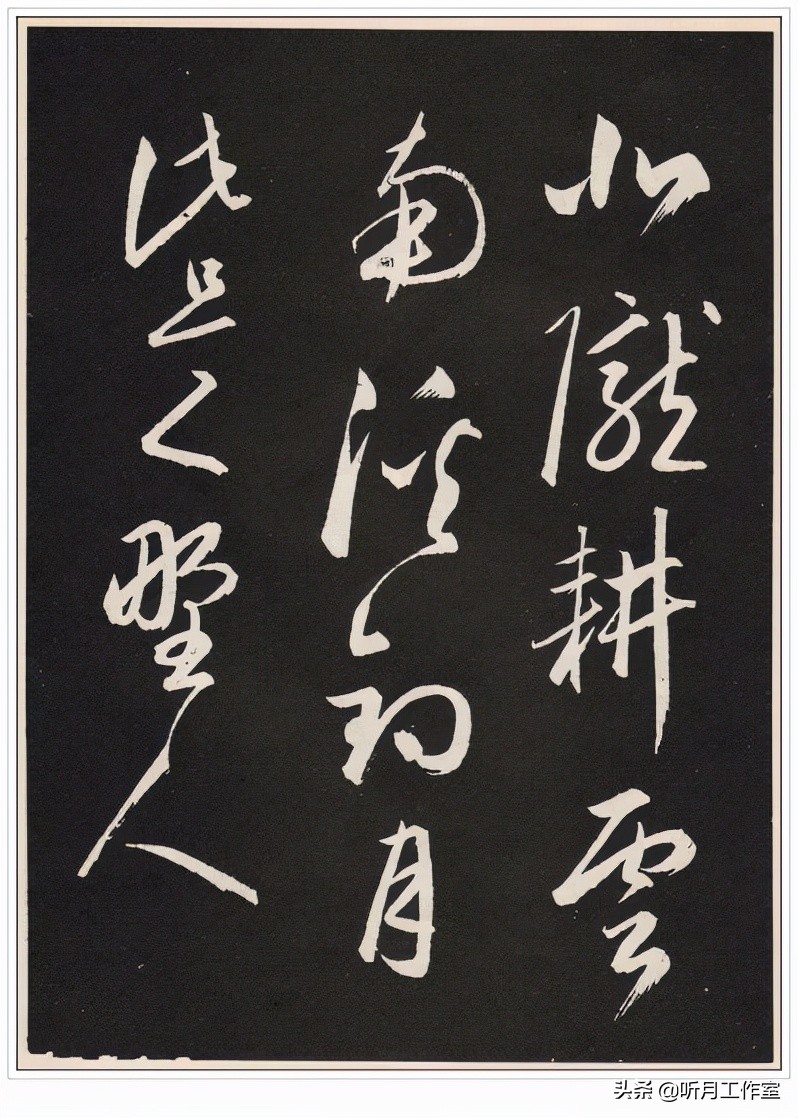 北隴耕雲
南溪釣月
此是野人
头条 @听月工作室